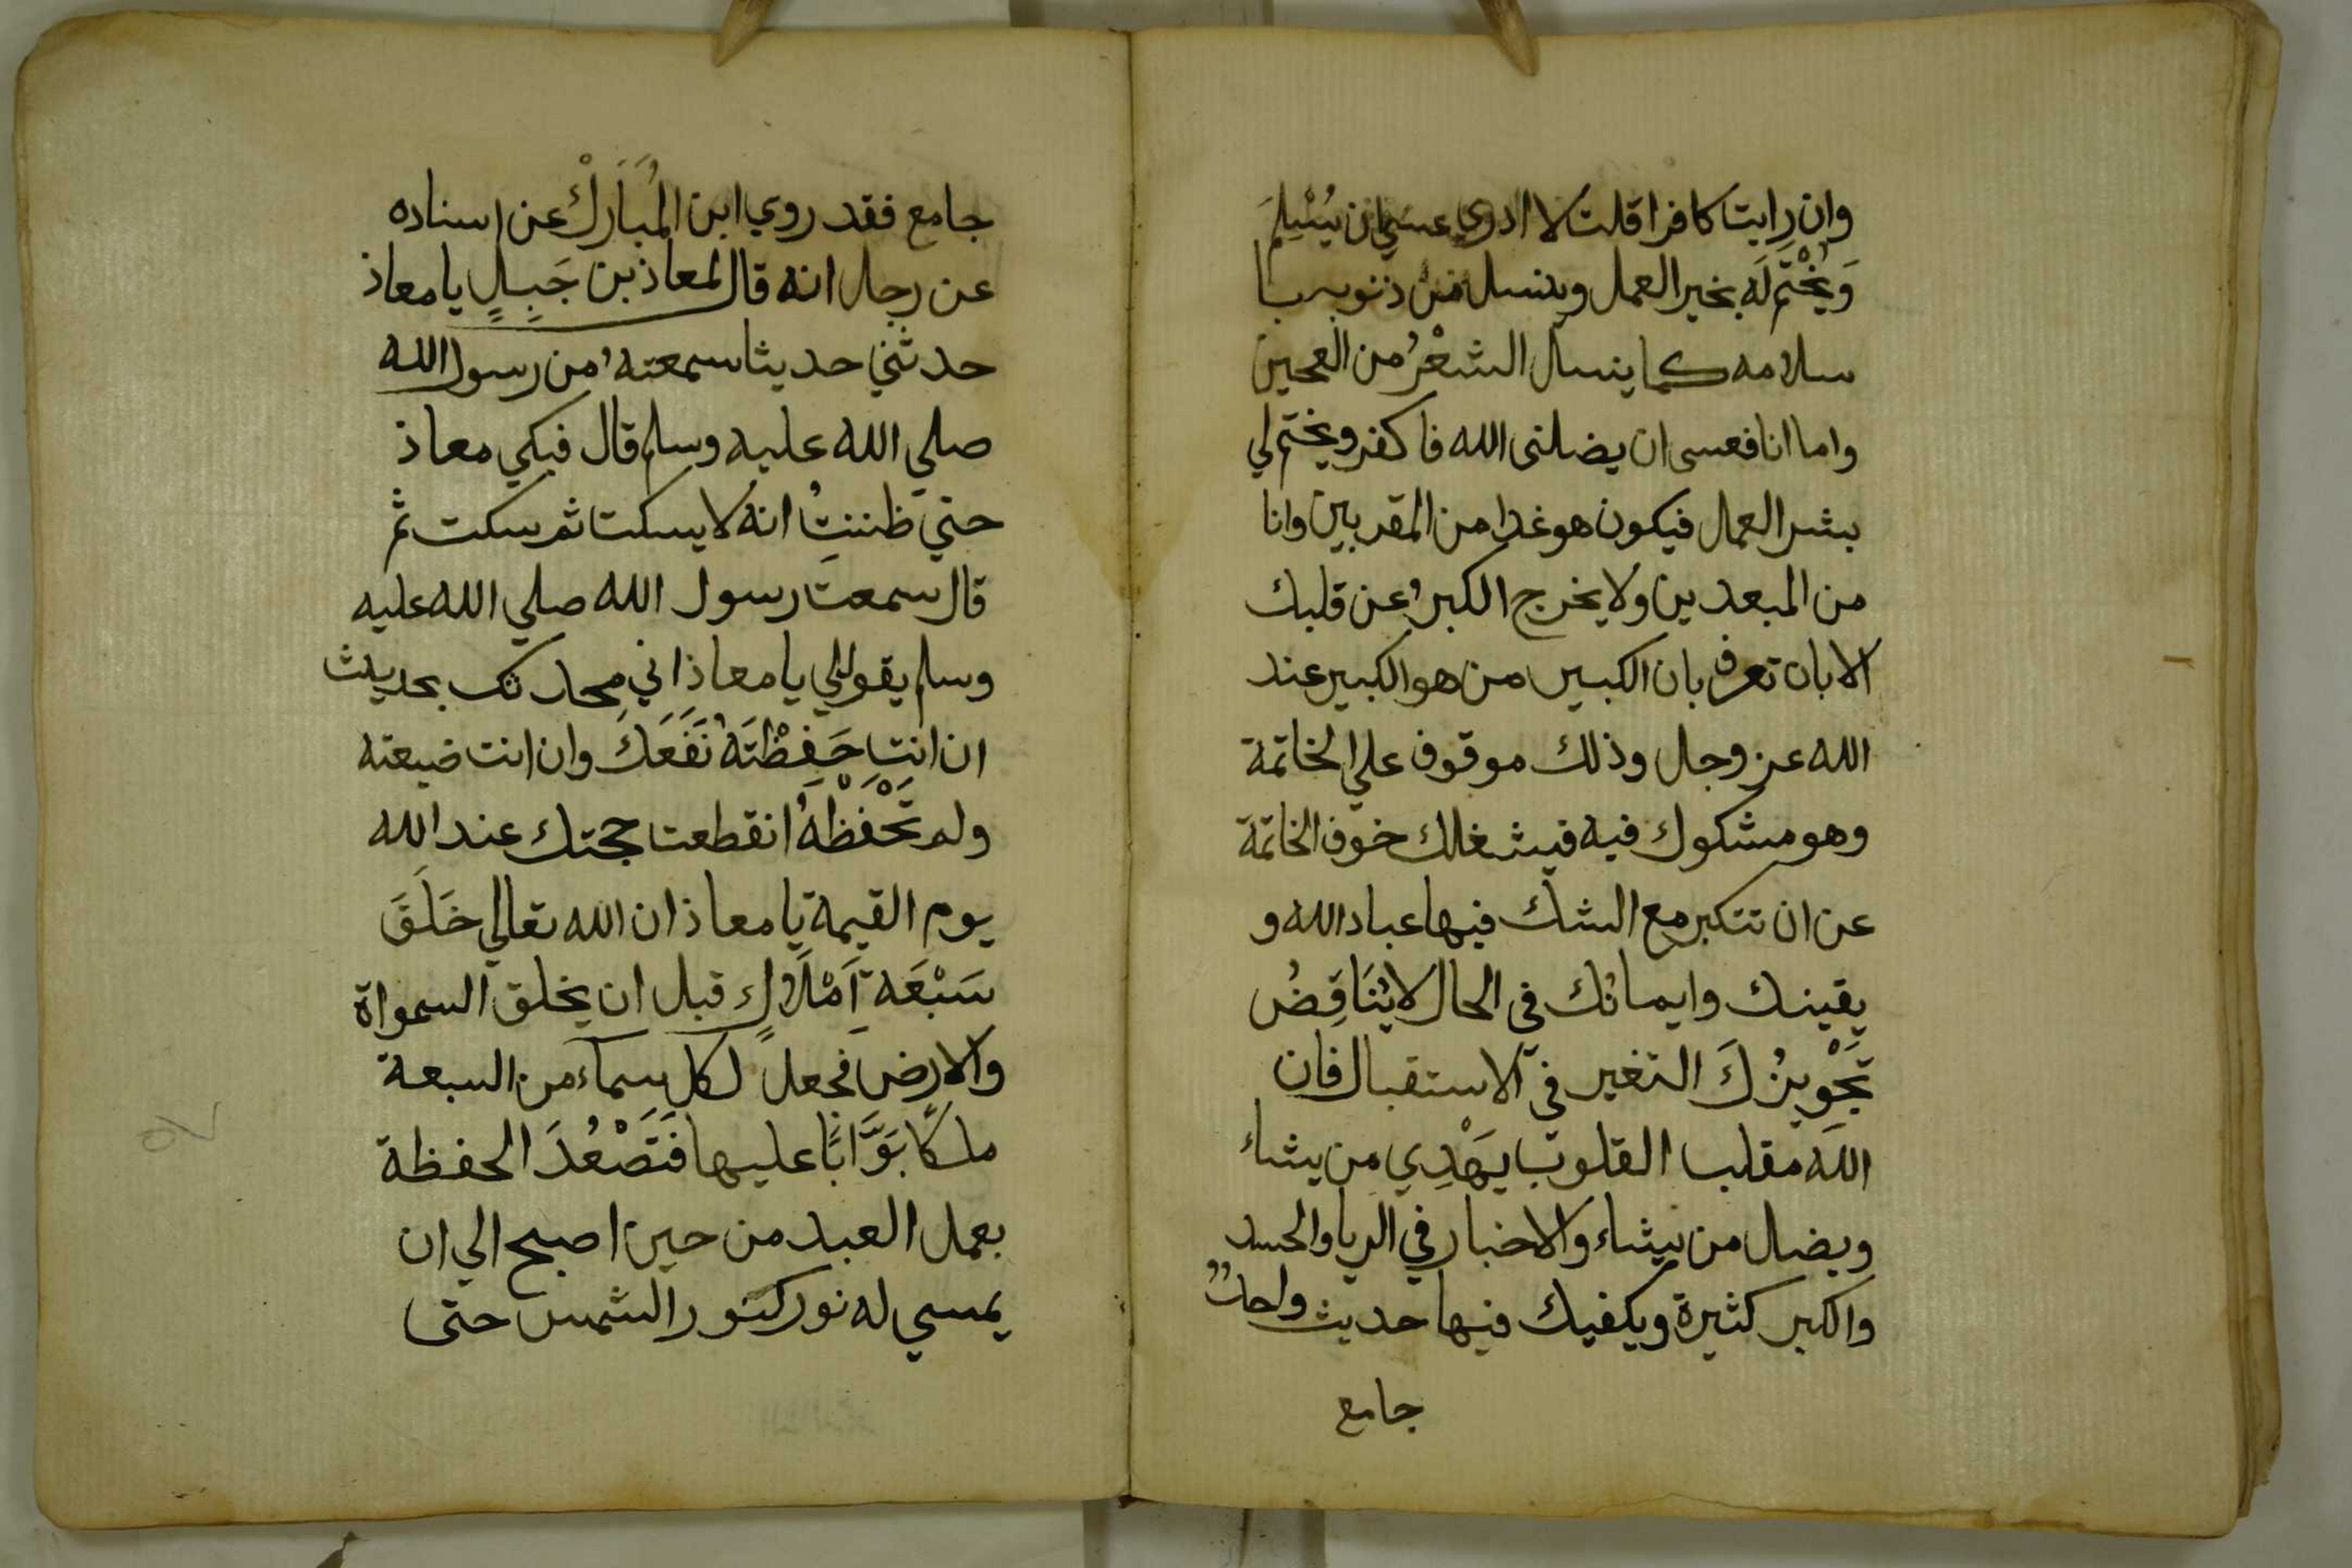 وان رايت كافرا قلت لا ادري عسي ان يُسْلِمَ
وَيُخْتَم لَه بخير العمل وينسل من ذنوبه با
سلامه كما ينسل الشعْرُ من العجين
واما انا فعسى ان يضلنى الله فاكفر ويختم لي
بشر العمل فيكون هو غدا من المقربين وانا
من المبعدين ولا يخرج الكبر عن قلبك
الا بان تعرف بان الكبير من هو الكبير عند
الله عز وجل وذلك موقوف علي الخاتمة
وهو مشكوك فيه فيشغلك خوف الخاتمة
عن ان تتكبر مع الشك فيها عباد الله و
يقينك وايمانك في الحال لا يُنَاقِضُ
تَجْوِيزُكَ التغير في الاستقبال فان
الله مقلب القلوب يَهْدِي من يشاء
ويضل من يشاء والاخبار في الريا والحسد
والكبر كثيرة ويكفيك فيها حديث واحد
جامع
جامع فقد روي ابن المُبَارَكْ عن اسناده
عن رجل انه قال لمعاذ بن جَبَلٍ يا معاذ
حدثني حديثا سمعته من رسول الله
صلي الله عليه وسلم قال فبكي معاذ
حتي ظننتُ انه لا يسكت ثم سكت ثم
قال سمعت رسول الله صلي الله عليه
وسلم يقول لي يا معاذ اني محدثك بحديث
ان انت حَفِظْتَهُ نَفَعَكَ وان انت ضيعته
ولم تَحْفَظْهُ انقطعت حجتك عند الله
يوم القيمة يا معاذ ان الله تعالي خَلَقَ
سَبْعَة اَمْلَاكٍ قبل ان يخلق السمواة
والارض فجعل لكل سماء من السبعة
ملكًا بَوَّابًا عليها فَتَصْعُدَ الحفظة
بعمل العبد من حين اصبح الي ان
يمسي له نور كنور الشمس حتى